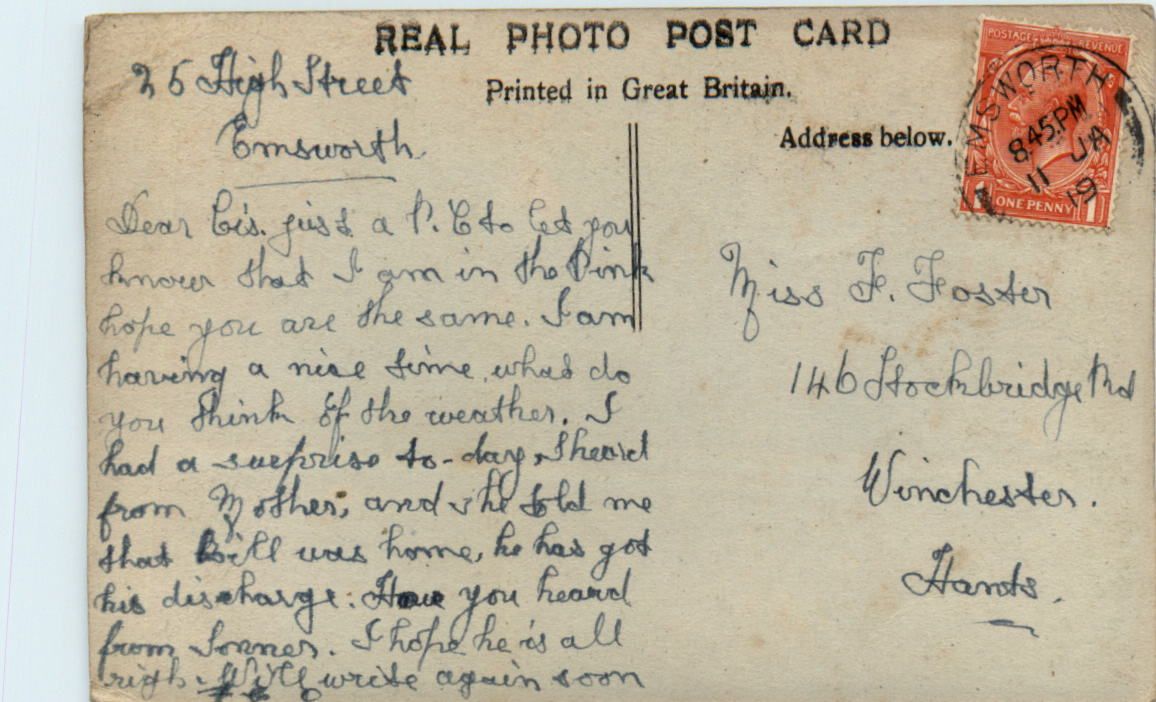 REAL PHOTO POST CARD
Printed in Great Britain.
Address below.
POSTAGE REVENUE
ONE PENNY
1 1
EMSWORTH
8.45 PM
11 JA
19
25 High Street
Emsworth
Dear Cis. just a P.C to let you
know that I am in the Pink
hope you are the same. I am
having a nice time, what do
you think of the weather. I
had a surprise to-day, I heard
from Mother, and she told me
that Bill was home, he has got
his discharge. Have you heard
from Sonner. I hope he is all
righ. Will write again soon
Miss F. Foster
146 Stockbridge Rd
Winchester.
Hants.